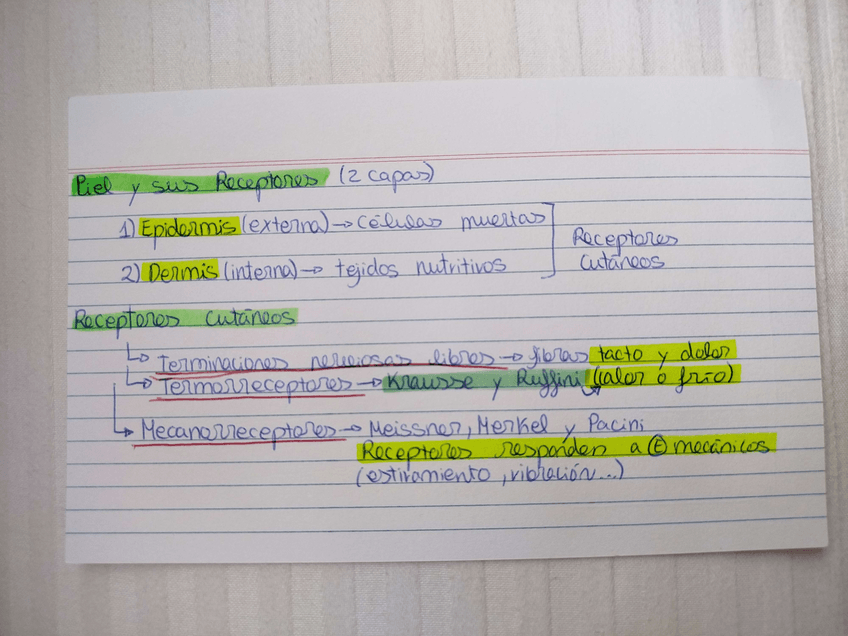 Piel y sus Receptores (2 capas)
1) Epidermis (externa) → Células muertas
2) Dermis (interna) → tejidos nutritivos
Receptores
Cutáneos
Receptores Cutáneos
↳ Terminaciones nerviosas libres → fibras tacto y dolor
↳ Termorreceptores → Krausse y Ruffini (calor o frío)
↳ Mecanorreceptores → Meissner, Merkel y Pacini
Receptores responden a Ⓔ mecánicos
(estiramiento, vibración...)